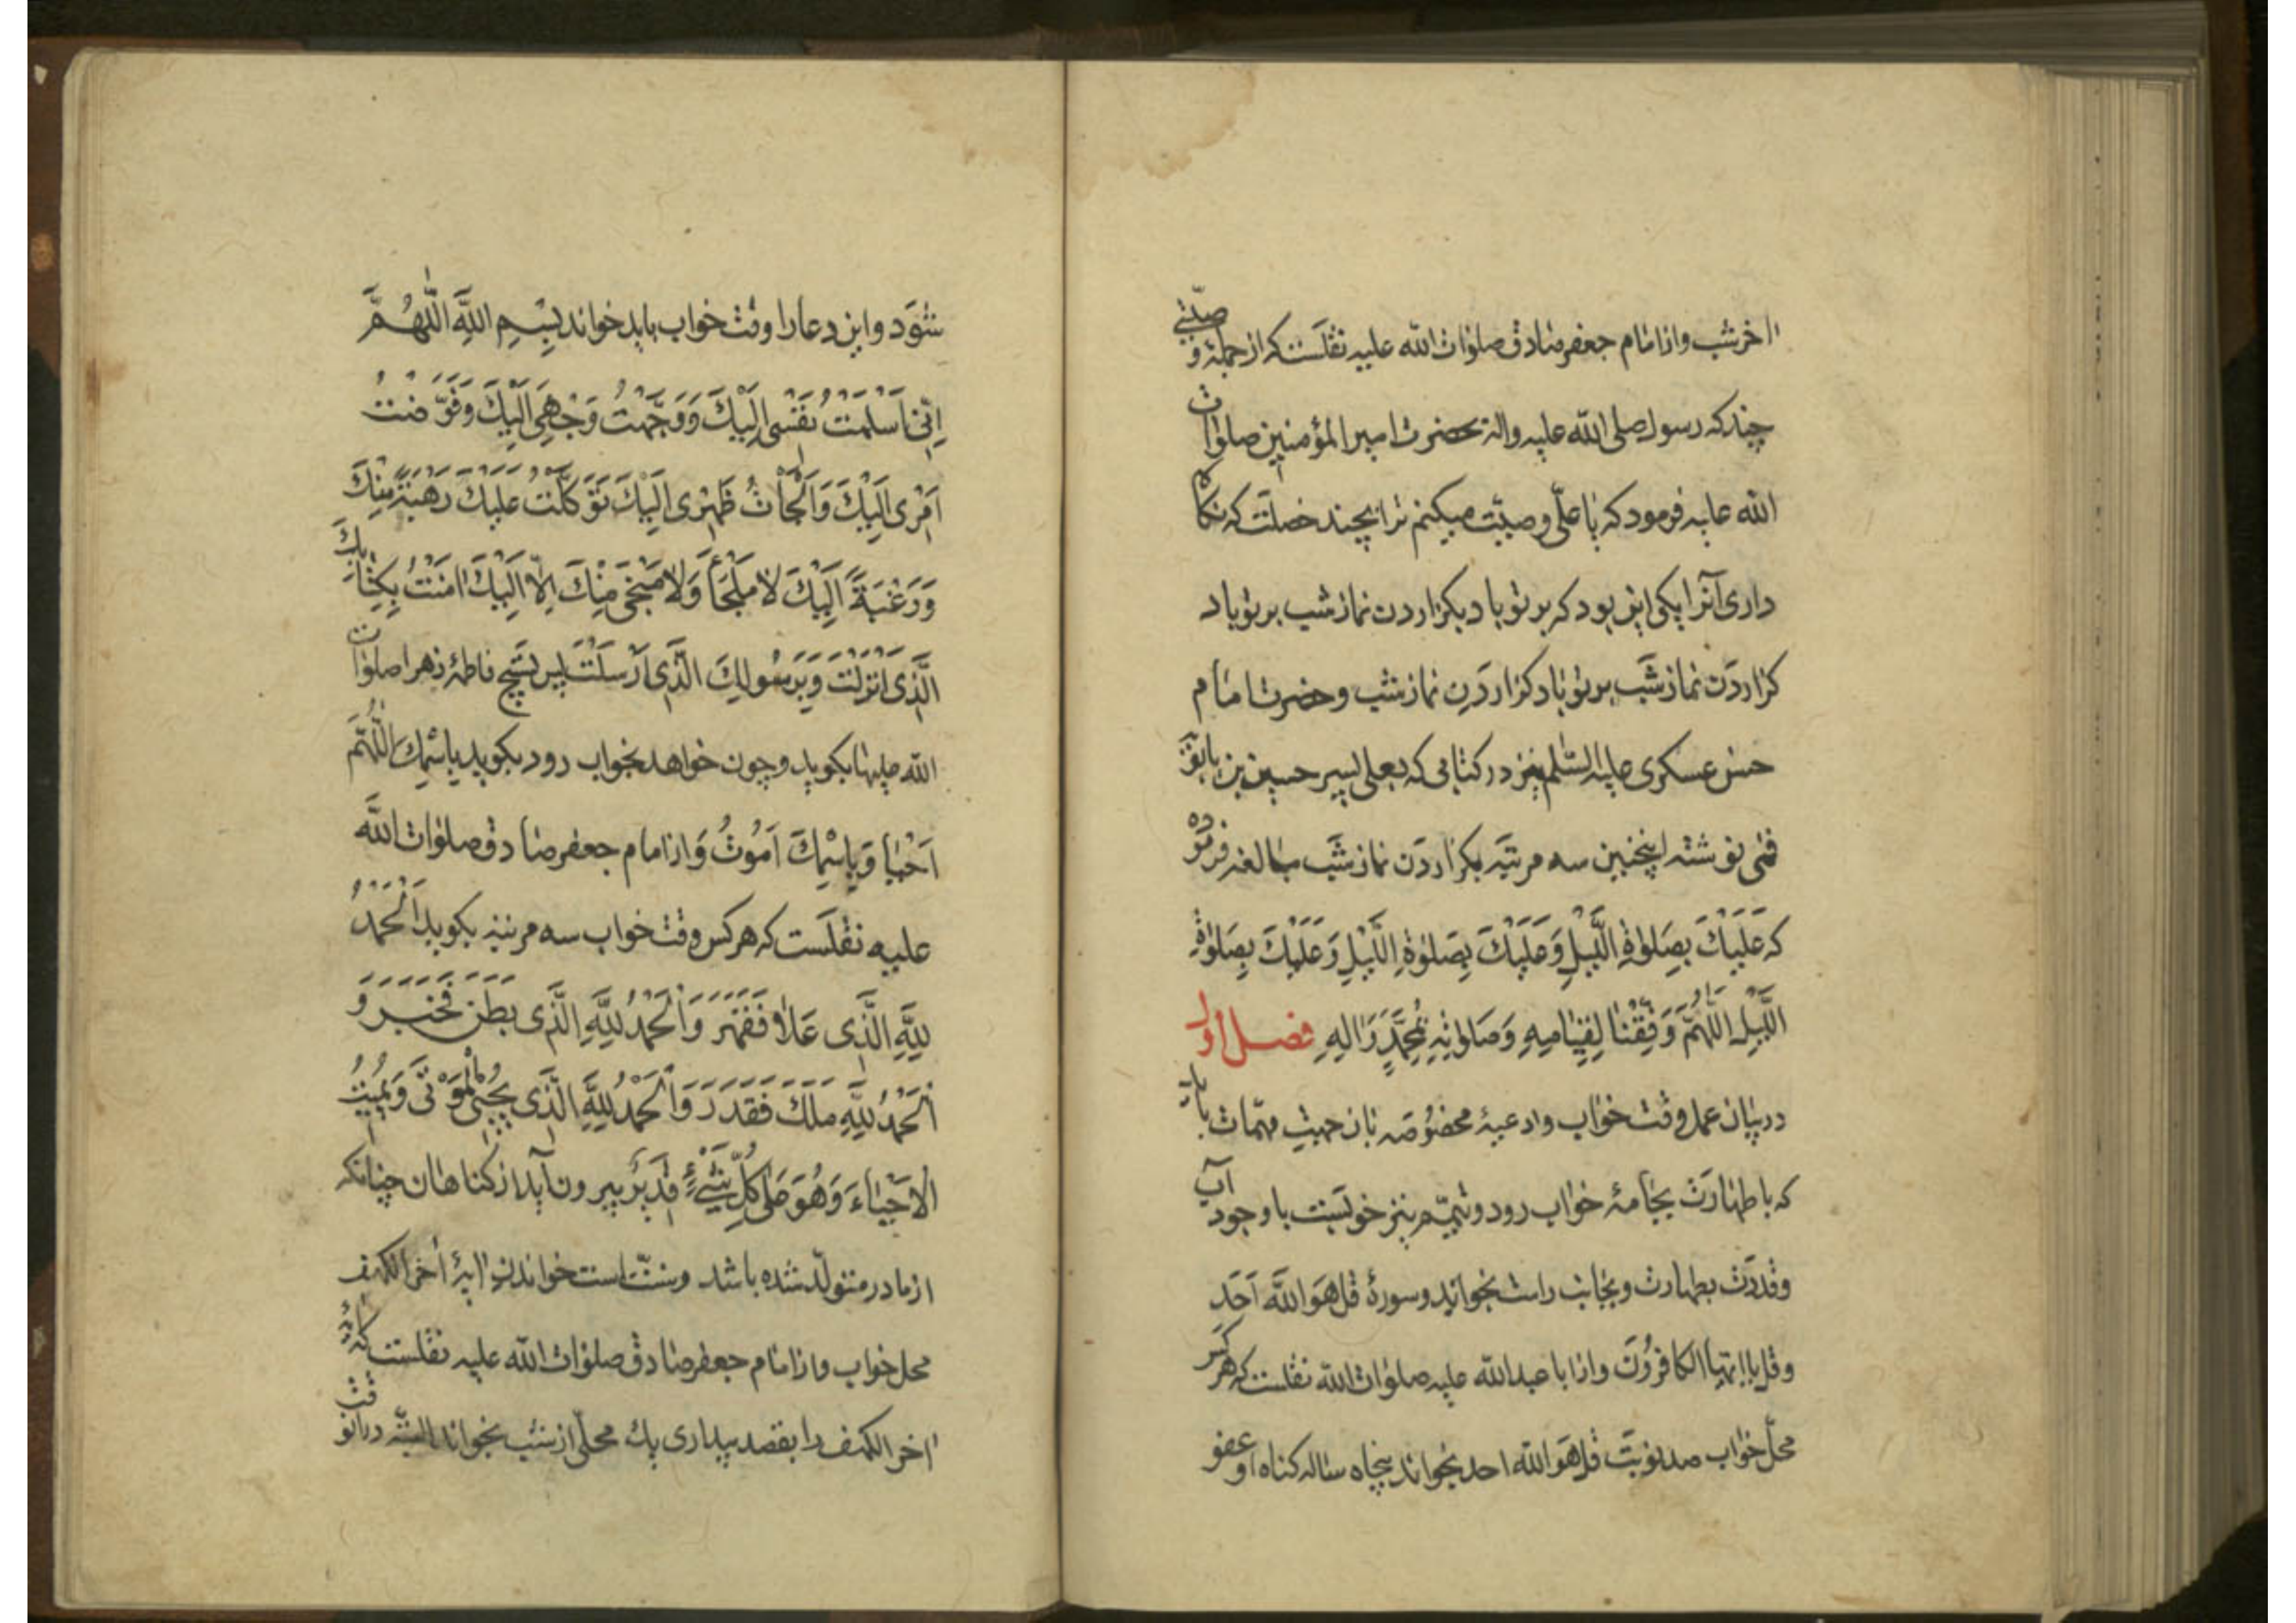 اخر شب و از امام جعفر صادق صلوات الله علیه نقلست که از جملۀ وصیتی
چند که رسول صلی الله علیه واله بحضرت امیر المؤمنین صلوات
الله علیه فرمود که یا علی وصیت میکنم ترا بچند خصلت که نکاه
داری آنرا یکی این بود که بر تو باد بکزاردن نماز شب بر تو باد
کزاردن نماز شب بر تو باد کزاردن نماز شب وحضرت امام
حسن عسکری علیه السلم نیز در کتابی که بعلی پسر حسین بن بابویه
قمی نوشته اینچنین سه مرتبه بکزاردن نماز شب مبالغه فرموده
که عَلَیْكَ بِصَلوٰةِ اللَّیْلِ وَعَلَیْكَ بِصَلوٰةِ اللَّیْلِ وَعَلَیْكَ بِصَلوٰةِ
اللَّیْلِ اللّٰهُمَّ وَفِّقْنا لِقِیٰامِهِ وَصَلوٰتِهِ بِمُحَمَّدٍ وَاٰلِهِ فصل اول
در بیان عمل وقت خواب وادعیۀ مخصوصه بان جهت مهمات باید
که با طهارت بجامۀ خواب رود وتیمم نیز خوبست با وجود آب
وقدرت بطهارت وبجانب راست بخوابد وسورۀ قل هو الله احد
وقل یا ایها الکافرون و از ابا عبد الله علیه صلوات الله نقلست که هر کس
محل خواب صد نوبت قل هو الله احد بخواند پنجاه ساله کناه او عفو
شود و این دعا را وقت خواب باید خواند بِسْمِ اللّٰهِ اللّٰهُمَّ
اِنّی اَسْلَمْتُ نَفْسی اِلَیْكَ وَوَجَّهْتُ وَجْهِی اِلَیْكَ وَفَوَّضْتُ
اَمْری اِلَیْكَ وَاَلْجَأْتُ ظَهْری اِلَیْكَ تَوَکَّلْتُ عَلَیْكَ رَهْبَةً مِنْكَ
وَرَغْبَةً اِلَیْكَ لا مَلْجَأَ وَلا مَنْجٰی مِنْكَ اِلّا اِلَیْكَ اٰمَنْتُ بِکِتٰابِكَ
الَّذی اَنْزَلْتَ وَبِرَسُولِكَ الَّذی اَرْسَلْتَ پس تسبیح فاطمۀ زهرا صلوات
الله علیها بکوید وچون خواهد بخواب رود بکوید بِاسْمِكَ اللّٰهُمَّ
اَحْیا وَبِاسْمِكَ اَمُوتُ و از امام جعفر صادق صلوات الله
علیه نقلست که هر کس وقت خواب سه مرتبه بکوید اَلْحَمْدُ
لِلّٰهِ الَّذی عَلاٰ فَقَهَرَ وَالْحَمْدُ لِلّٰهِ الَّذی بَطَنَ فَخَبَرَ وَ
الْحَمْدُ لِلّٰهِ مَلَكَ فَقَدَرَ وَالْحَمْدُ لِلّٰهِ الَّذی یُحْیِی الْمَوْتٰی وَیُمیتُ
الْاَحْیٰاءَ وَهُوَ عَلٰی کُلِّ شَیْءٍ قَدیرٌ بیرون آید از کناهان چنانکه
از مادر متولد شده باشد وسنت است خواندن آیۀ آخر الکهف
محل خواب و از امام جعفر صادق صلوات الله علیه نقلست که هر
آخر الکهف را بقصد بیداری یك محلی از شب بخواند البته در آن وقت